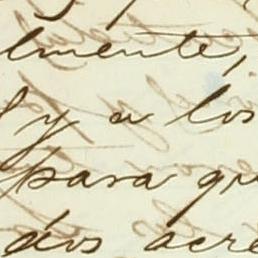 lmente,
y a los
para qu
dos acre